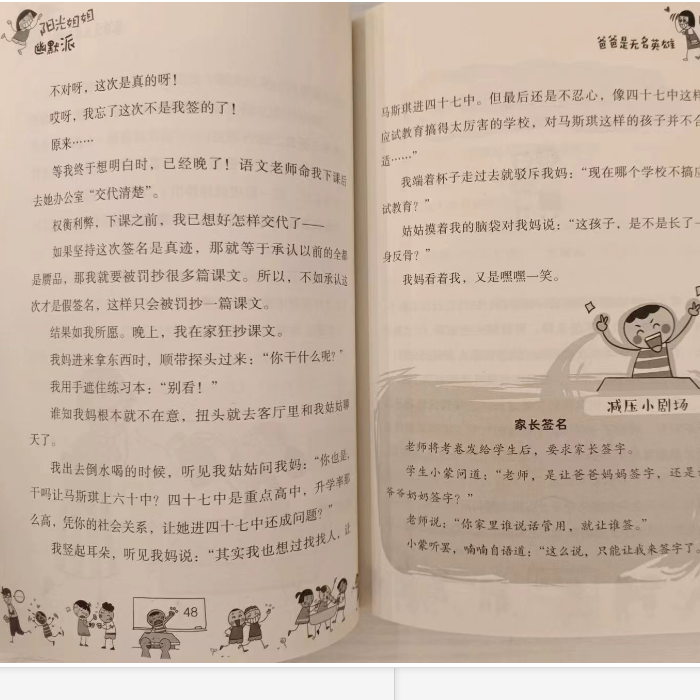 阳光姐姐
幽默派
不对呀，这次是真的呀！
哎呀，我忘了这次不是我签的了！
原来……
等我终于想明白时，已经晚了！语文老师命我下课后
去她办公室“交代清楚”。
权衡利弊，下课之前，我已想好怎样交代了——
如果坚持这次签名是真迹，那就等于承认以前的全都
是赝品，那我就要被罚抄很多篇课文。所以，不如承认这
次才是假签名，这样只会被罚抄一篇课文。
结果如我所愿。晚上，我在家狂抄课文。
我妈进来拿东西时，顺带探头过来：“你干什么呢？”
我用手遮住练习本：“别看！”
谁知我妈根本就不在意，扭头就去客厅里和我姑姑聊
天了。
我出去倒水喝的时候，听见我姑姑问我妈：“你也是，
干吗让马斯琪上六十中？四十七中是重点高中，升学率那
么高，凭你的社会关系，让她进四十七中还成问题？”
我竖起耳朵，听见我妈说：“其实我也想过找找人，让
48
爸爸是无名英雄
马斯琪进四十七中。但最后还是不忍心，像四十七中这样
应试教育搞得太厉害的学校，对马斯琪这样的孩子并不合
适……”
我端着杯子走过去就驳斥我妈：“现在哪个学校不搞应
试教育？”
姑姑摸着我的脑袋对我妈说：“这孩子，是不是长了一
身反骨？”
我妈看着我，又是嘿嘿一笑。
减压小剧场
家长签名
老师将考卷发给学生后，要求家长签字。
学生小蒙问道：“老师，是让爸爸妈妈签字，还是让
爷爷奶奶签字？”
老师说：“你家里谁说话管用，就让谁签。”
小蒙听罢，喃喃自语道：“这么说，只能让我来签字了。